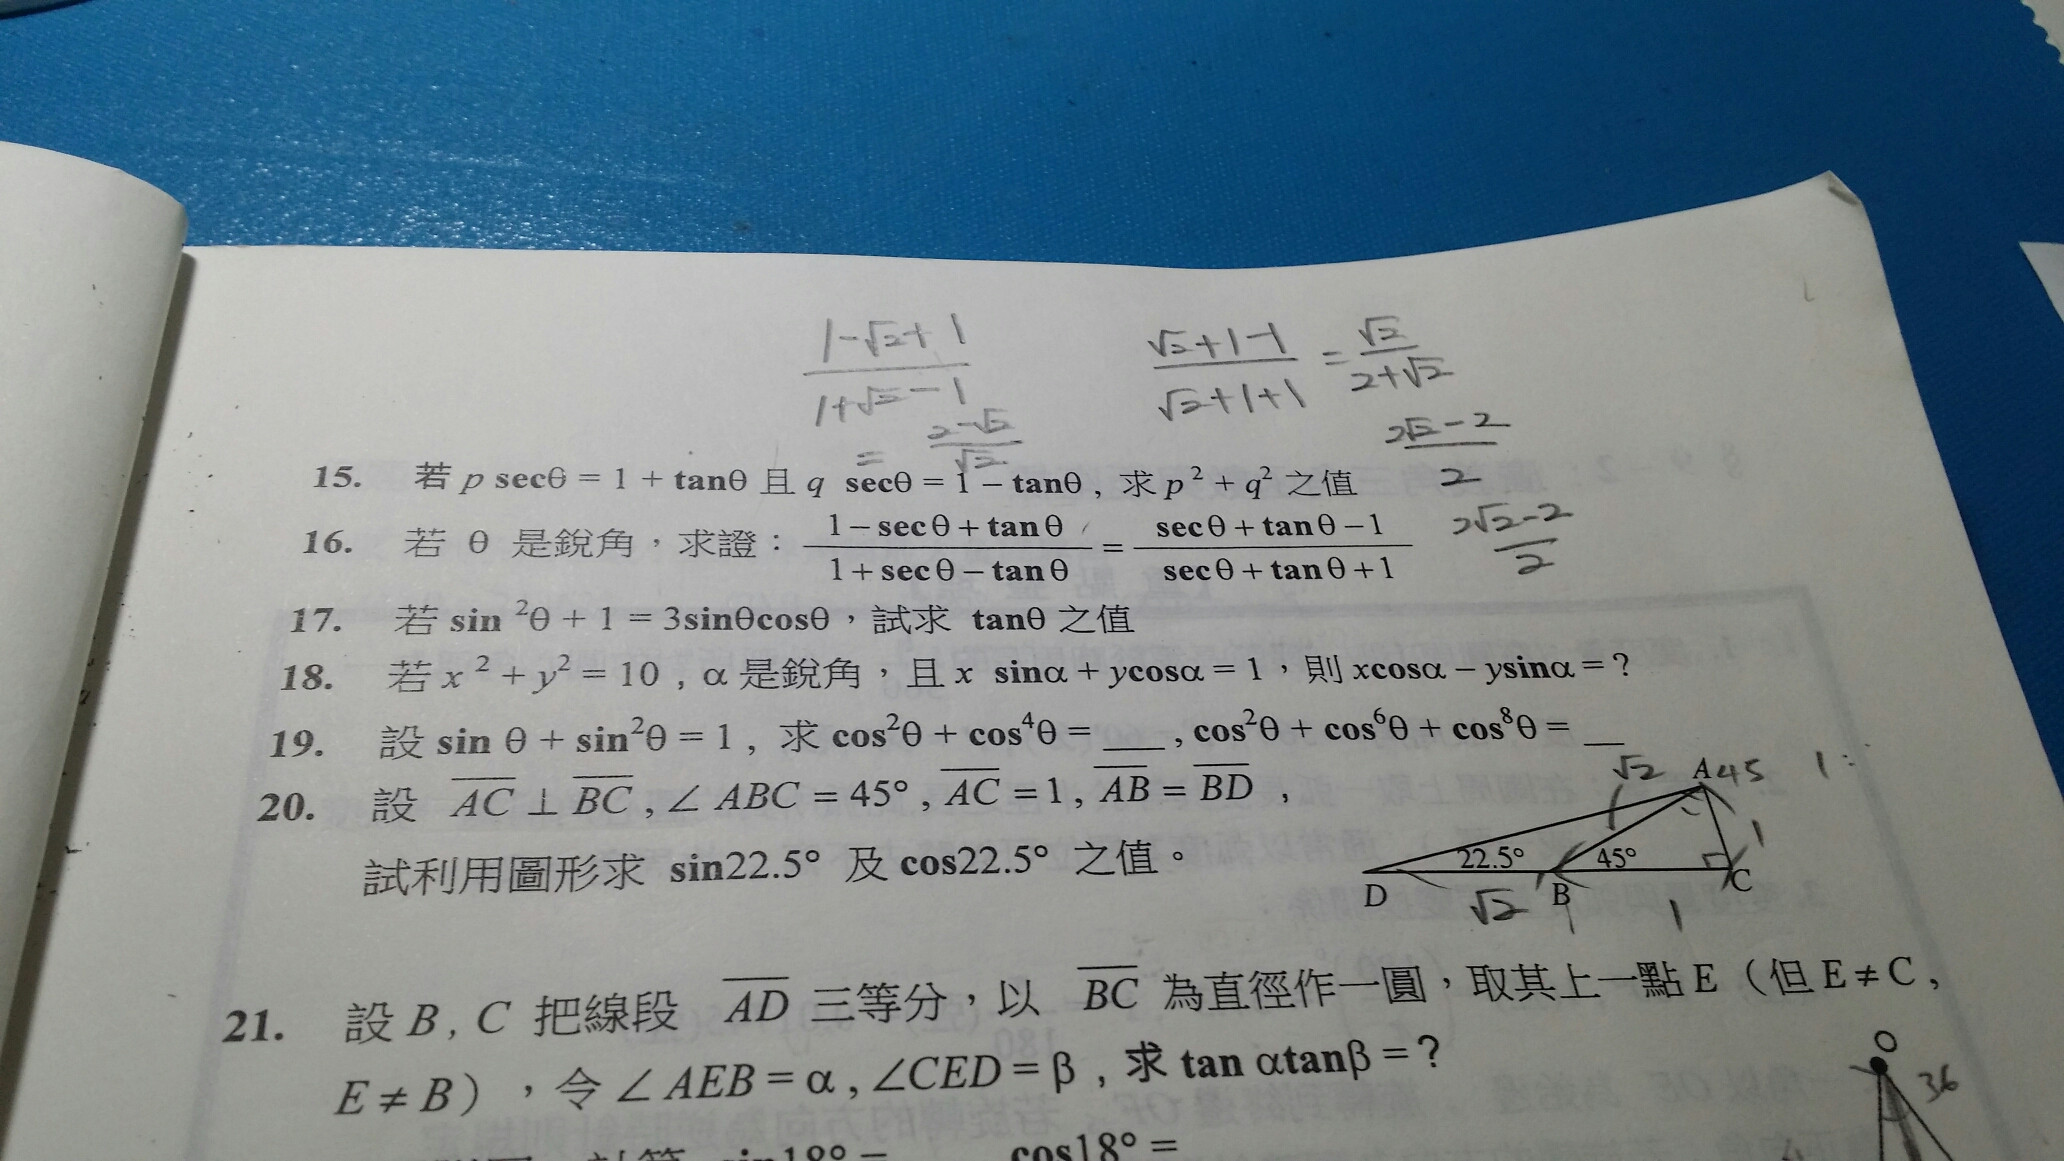 1-√2+1 / 1+√2-1
= 2-√2 / √2
√2+1-1 / √2+1+1 = √2 / 2+√2
2√2-2 / 2
15. 若 p secθ = 1 + tanθ 且 q secθ = 1 – tanθ , 求 p² + q² 之值
16. 若 θ 是銳角，求證： 1 – sec θ + tan θ / 1 + sec θ – tan θ = sec θ + tan θ – 1 / sec θ + tan θ + 1
2√2-2 / 2
17. 若 sin ²θ + 1 = 3sinθcosθ，試求 tanθ 之值
18. 若 x ² + y² = 10 , α 是銳角，且 x sinα + ycosα = 1，則 xcosα – ysinα = ?
19. 設 sin θ + sin²θ = 1 , 求 cos²θ + cos⁴θ = ___ , cos²θ + cos⁶θ + cos⁸θ = __
20. 設 A̅C̅ ⊥ B̅C̅ , ∠ ABC = 45° , A̅C̅ = 1 , A̅B̅ = B̅D̅ ,
試利用圖形求 sin22.5° 及 cos22.5° 之值。
√2 A 45 1:
1
22.5° 45°
D B C
√2 1
21. 設 B , C 把線段 A̅D̅ 三等分，以 B̅C̅ 為直徑作一圓，取其上一點 E（但 E ≠ C ,
E ≠ B），令 ∠ AEB = α , ∠CED = β , 求 tan αtanβ = ?
O
36
sin18° = cos18° =